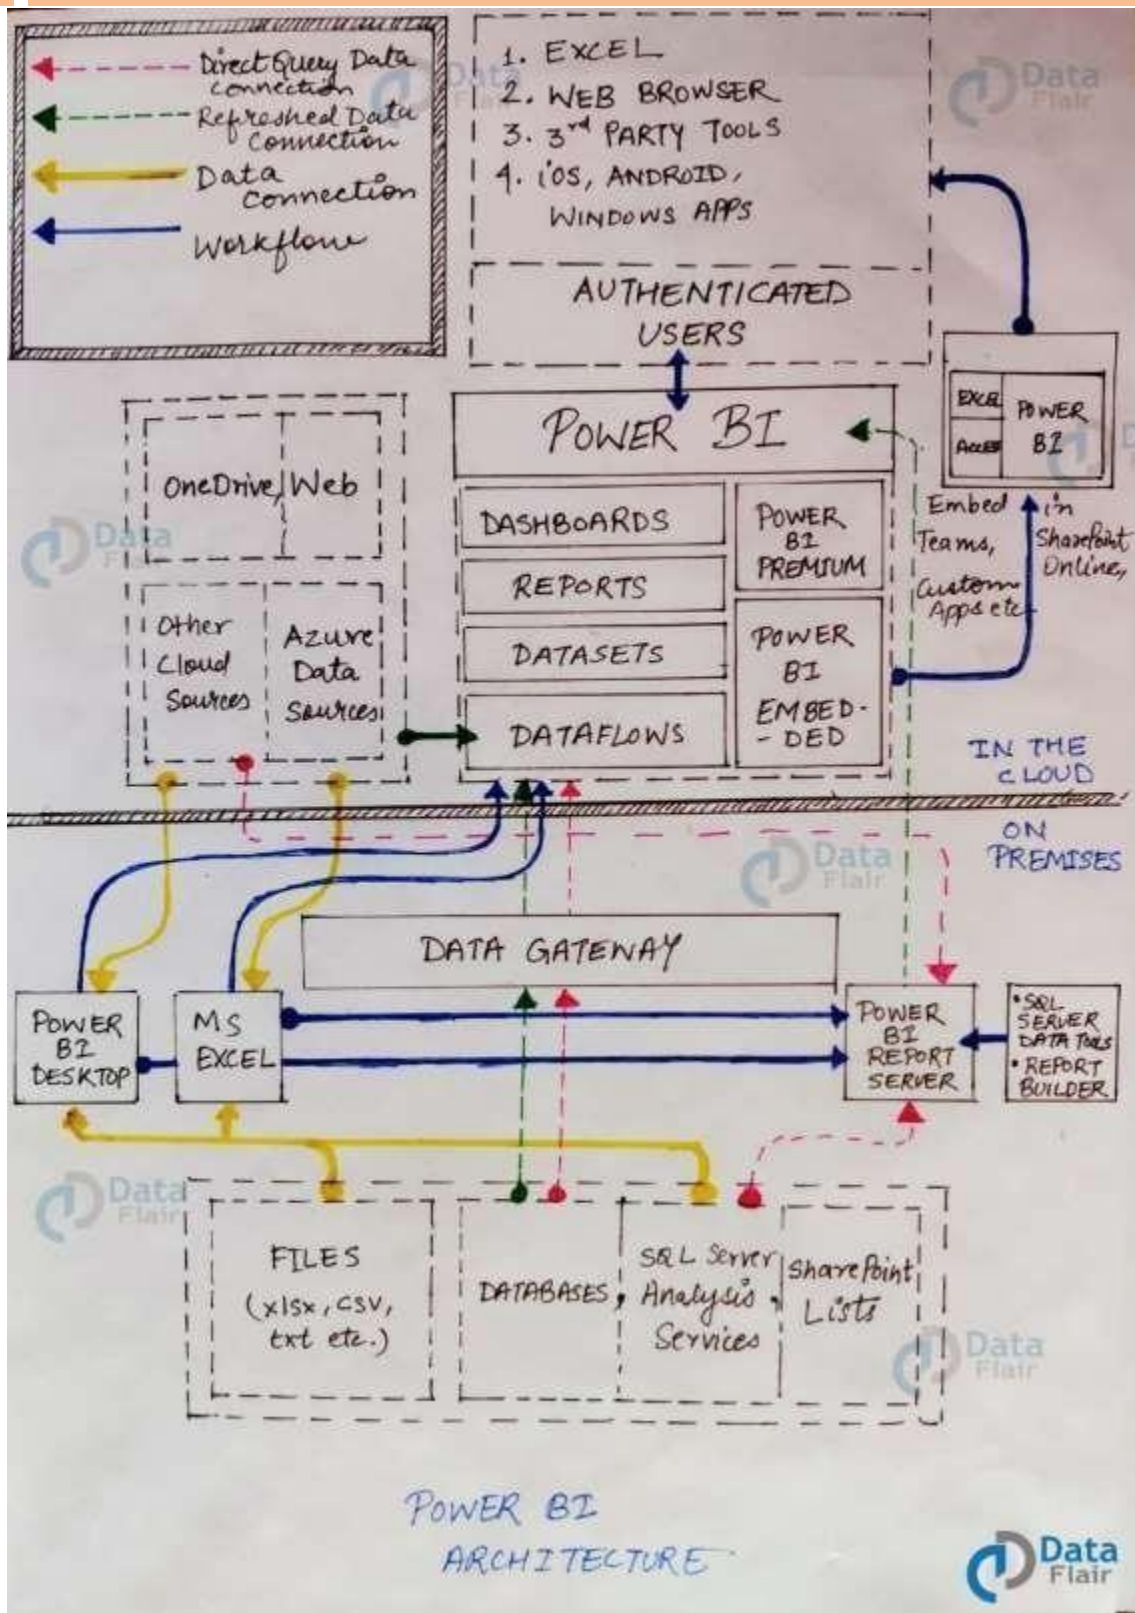 Direct Query Data
Connection
Refreshed Data
Connection
Data
Connection
Workflow
1. EXCEL
2. WEB BROWSER
3. 3rd PARTY TOOLS
4. iOS, ANDROID,
WINDOWS APPS
AUTHENTICATED
USERS
OneDrive, Web
Other
Cloud
Sources
Azure
Data
Sources
POWER BI
DASHBOARDS
REPORTS
DATASETS
DATAFLOWS
POWER
BI
PREMIUM
POWER
BI
EMBED-
- DED
EXCEL
ACCESS
POWER
BI
Embed in
Teams, SharePoint
Online,
Custom
Apps etc
IN THE
CLOUD
ON
PREMISES
DATA GATEWAY
POWER
BI
DESKTOP
MS
EXCEL
POWER
BI
REPORT
SERVER
• SQL
SERVER
DATA TOOLS
• REPORT
BUILDER
FILES
(xlsx, csv,
txt etc.)
DATABASES,
SQL Server
Analysis
Services
SharePoint
Lists
POWER BI
ARCHITECTURE
Data
Flair
Data
Flair
Data
Flair
Data
Flair
Data
Flair
Data
Flair
Data
Flair